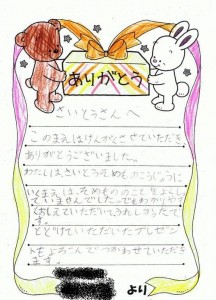 ありがとう
さいとうさんへ
このまえはけんがくさせていただき
ありがとうございました。
わたしはさいとうそめものこうじょうに
いくまえは、そめもののことをよくし
っていませんでした。でもわかりやす
くおしえていただいてうれしかったで
す。
とどけていただいたプレゼン
トをよろこんでつかわせていただき
ます。
より